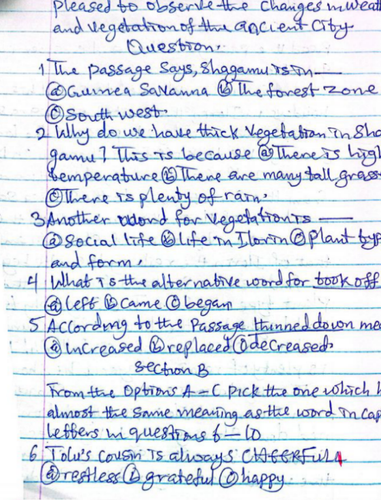 Pleased to observe the Changes in Weat
and Vegetation of the ancient City
Question.
1 The Passage Says, Shagamu is in —
(a) Guinea Savanna (b) The forest zone
(c) South west.
2 Why do we have thick Vegetation in Sha
gamu? This is because (a) There is high
temperature (b) There are many tall grass
(c) There is plenty of rain.
3 Another word for Vegetation is —
(a) Social life (b) life in Ilorin (c) Plant typ
and form.
4 What is the alternative word for took off
(a) left (b) came (c) began
5 According to the Passage thinned down me
(a) increased (b) replaced (c) decreased.
Section B
From the Options A – C pick the one which h
almost the same meaning as the word in cap
letters in questions 6 – 10
6. Tolu's cousin is always CHEERFUL
(a) restless (b) grateful (c) happy